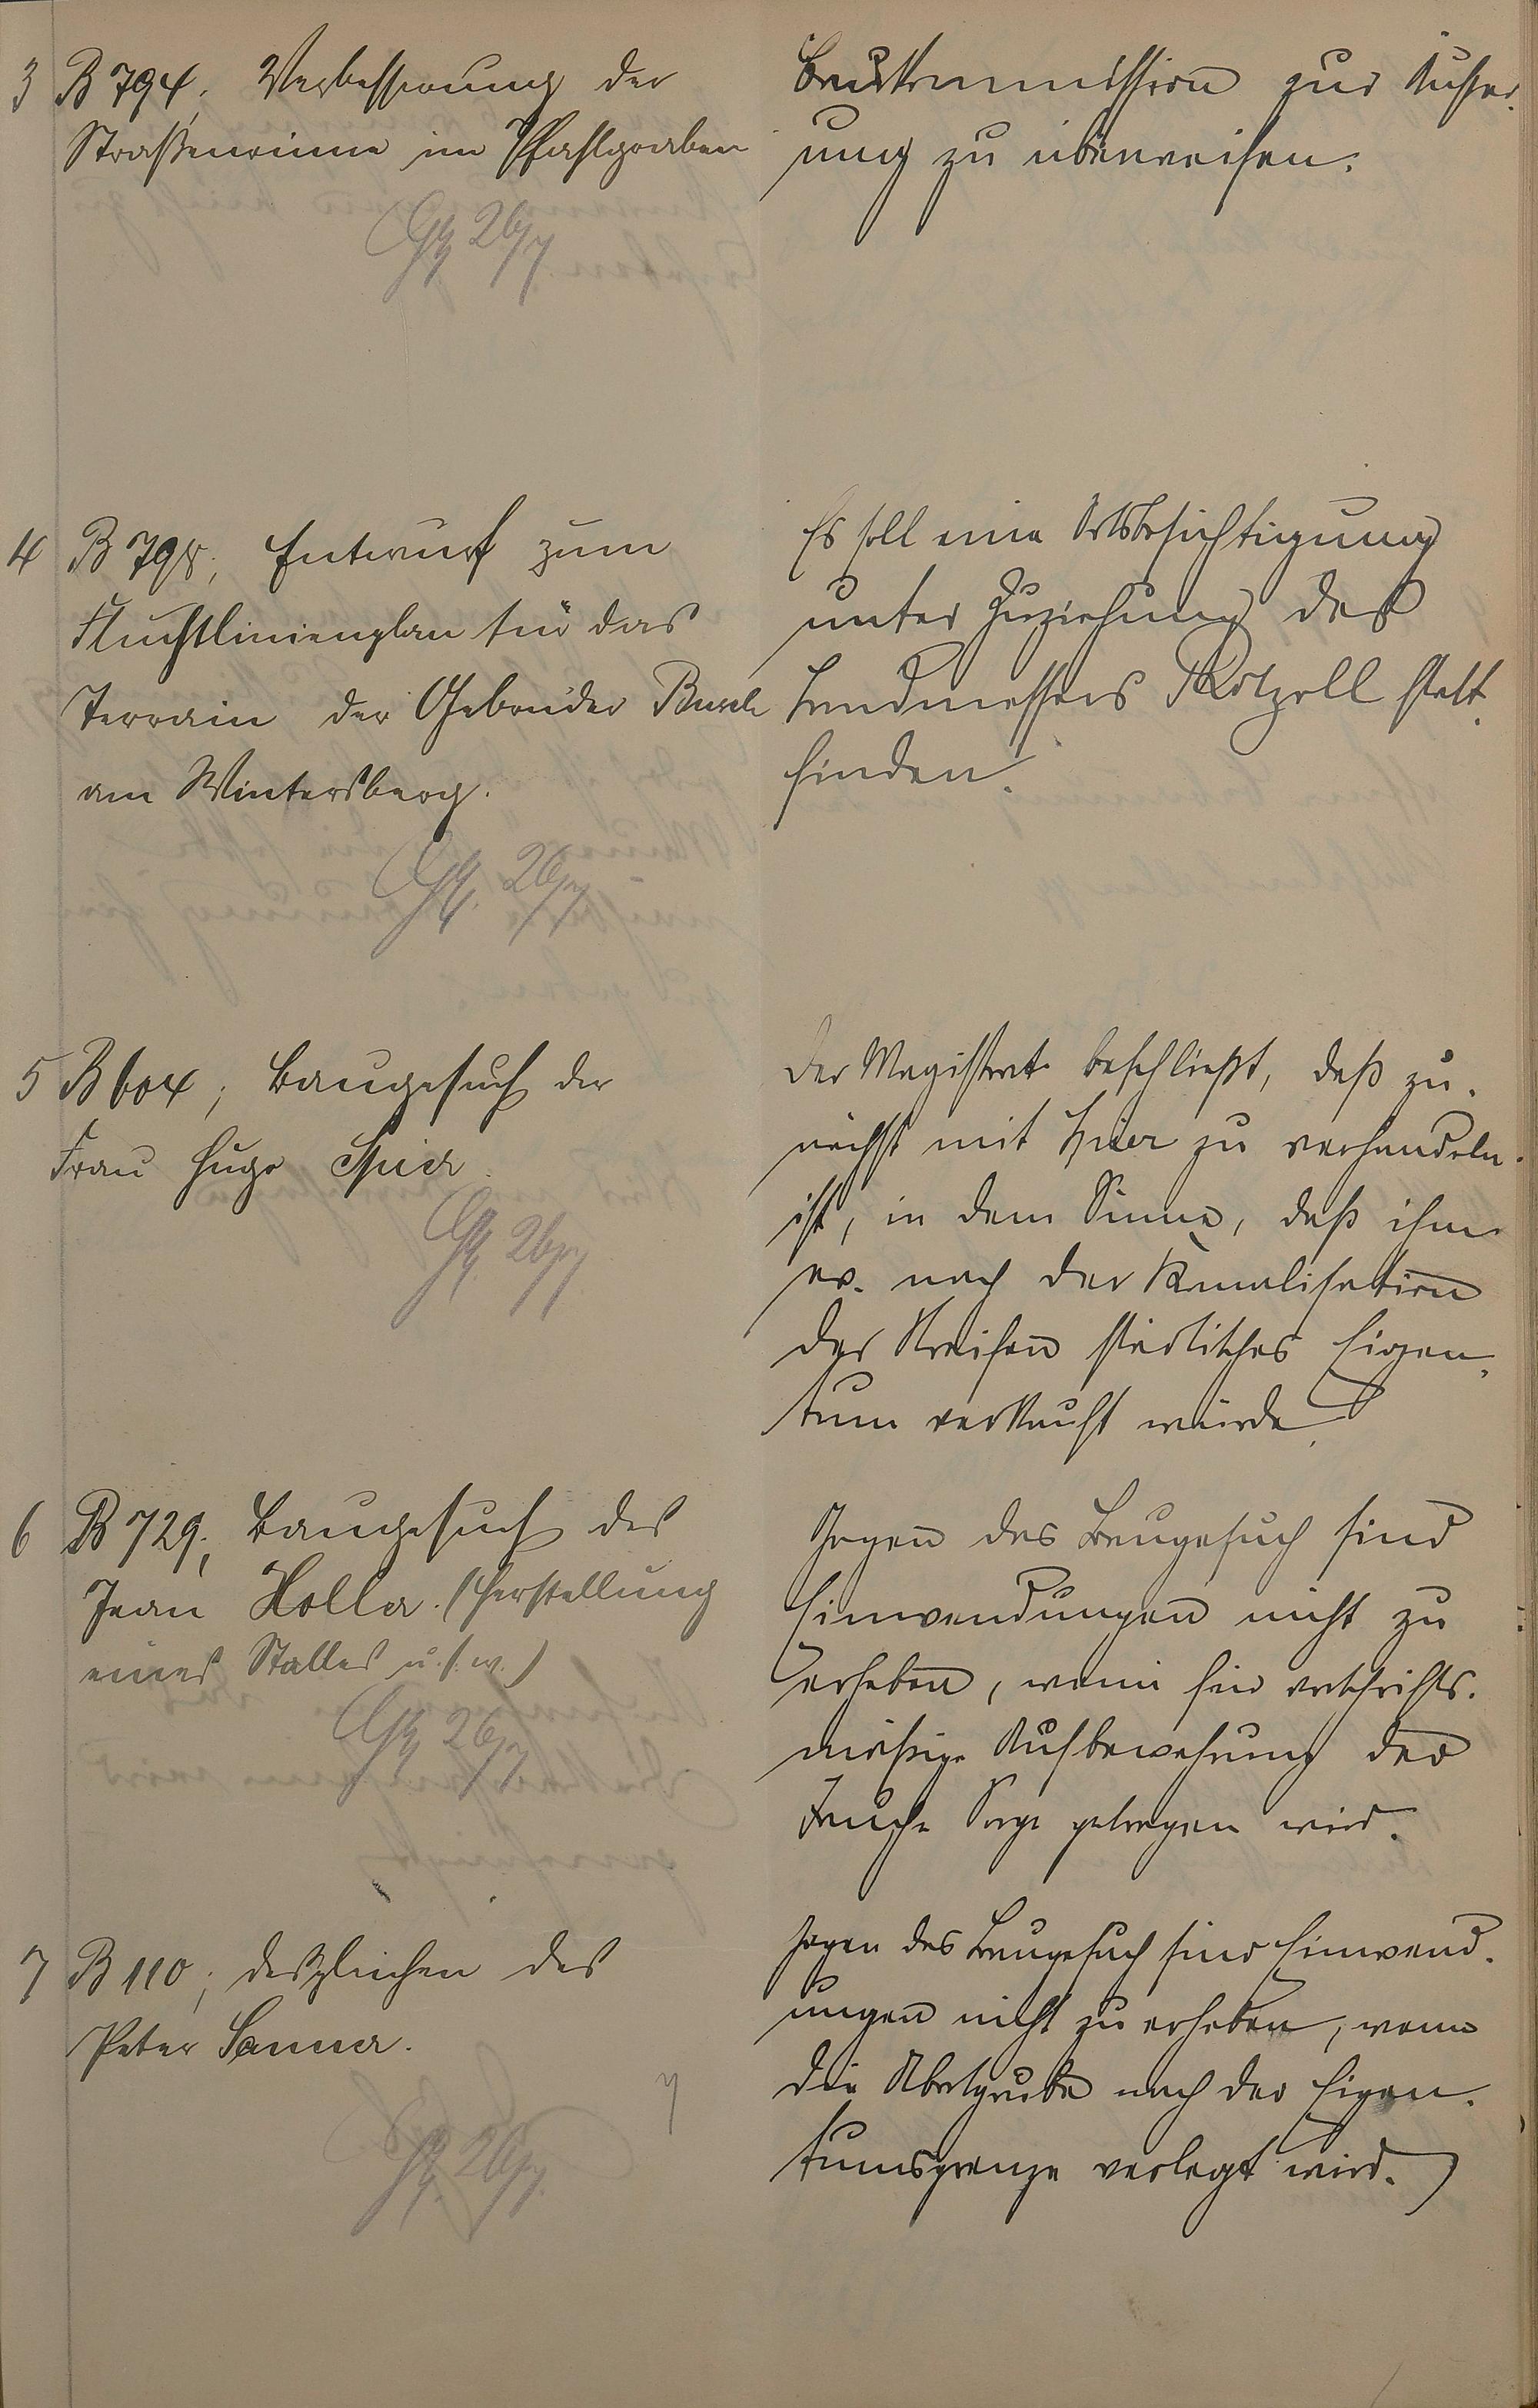 3 B 794, Verbesserung der
Straßenrinne im Pfahlgraben
Baukommission zur Äußer-
ung zu überweisen.
4 B 798, Entwurf zum
Fluchtlinienplan für das
Terrain der Gebrüder Busch
am Wintersberg.
Es soll eine Ortsbesichtigung
unter Zuziehung des
Landmessers Rotzoll statt-
finden.
5 B 604, Baugesuch der
Frau Hugo Spier
Der Magistrat beschließt, daß zu-
nächst mit Spier zu verhandeln
ist, in dem Sinne, daß ihm
ev. nach der Kanalisation
der Streifen städtisches Eigen-
tum verkauft würde.
6 B 729, Baugesuch des
Jean Holler. (Herstellung
eines Stalles u.s.w.)
Gegen das Baugesuch sind
Einwendungen nicht zu
erheben, wenn für vorschrifts-
mäßige Aufbewahrung der
Jauche Sorge getragen wird.
7 B 110, desgleichen des
Peter Sanner.
Gegen das Baugesuch sind Einwend-
ungen nicht zu erheben, wenn
die Abortgrube nach der Eigen-
tumsgrenze verlegt wird.